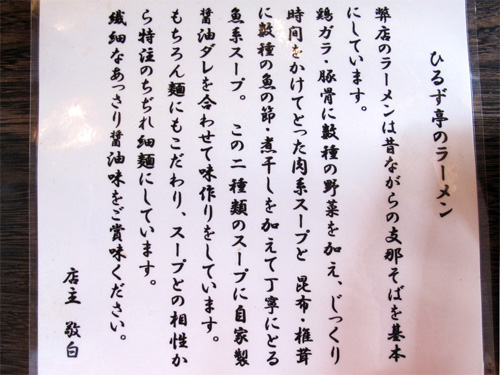 ひるず亭のラーメン
弊店のラーメンは昔ながらの支那そばを基本
にしています。
鶏ガラ・豚骨に数種の野菜を加え、じっくり
時間をかけてとった肉系スープと 昆布・椎茸
に数種の魚の節・煮干しを加えて丁寧にとる
魚系スープ。 この二種類のスープに自家製
醤油ダレを合わせて味作りをしています。
もちろん麺にもこだわり、スープとの相性か
ら特注のちぢれ細麺にしています。
繊細なあっさり醤油味をご賞味ください。
店主 敬白